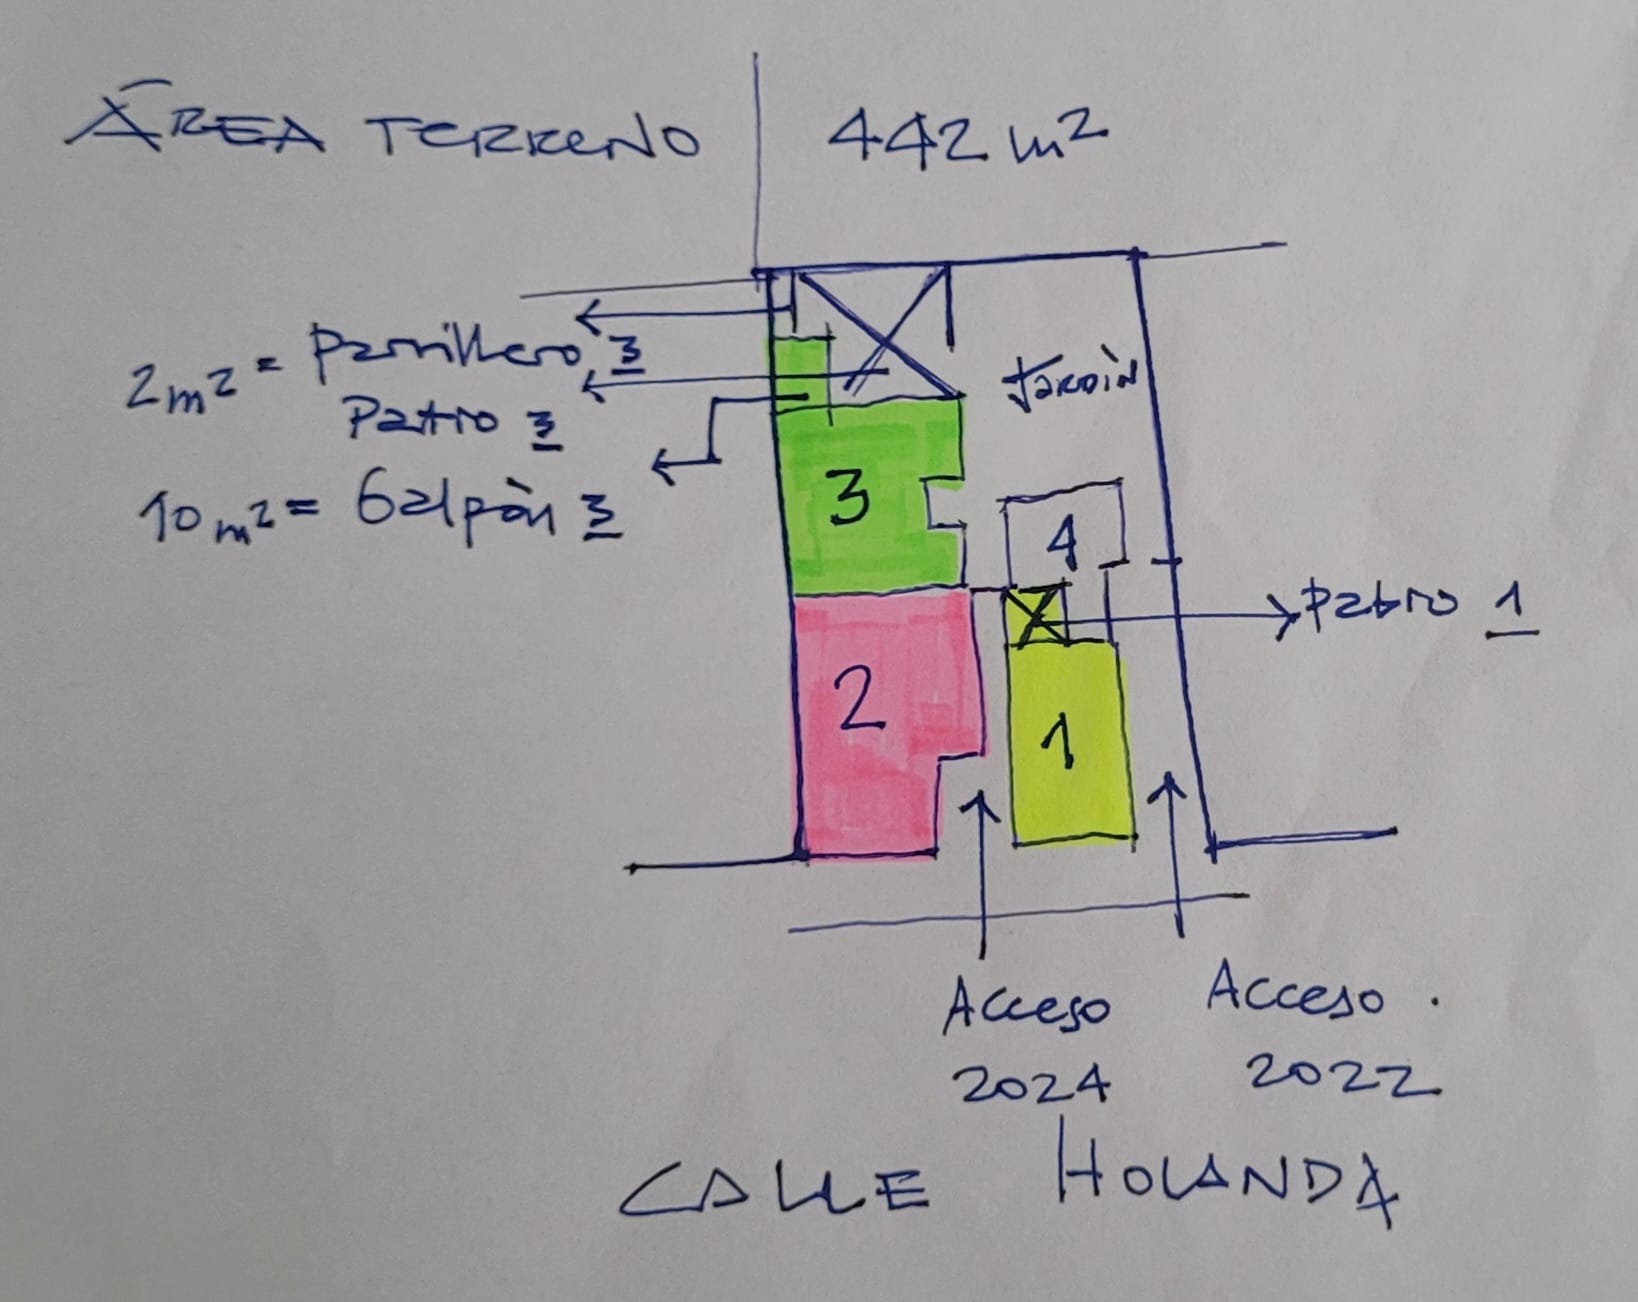 ÁREA TERRENO 442 m2
2m2 = Parrillero 3
Patio 3
10m2 = Galpòn 3
Jardìn
3
4
2
1
Patio 1
Acceso 2024
Acceso. 2022
CALLE HOLANDA